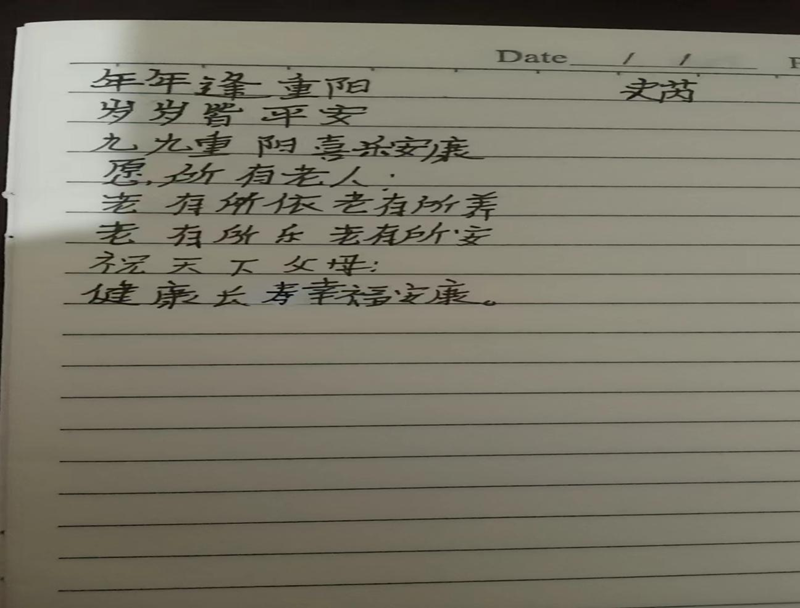 Date / /
年年逢重阳 史芮
岁岁皆平安
九九重阳喜乐安康
愿,所有老人:
老有所依老有所养
老有所乐 老有所安
祝天下父母:
健康长孝幸福安康。